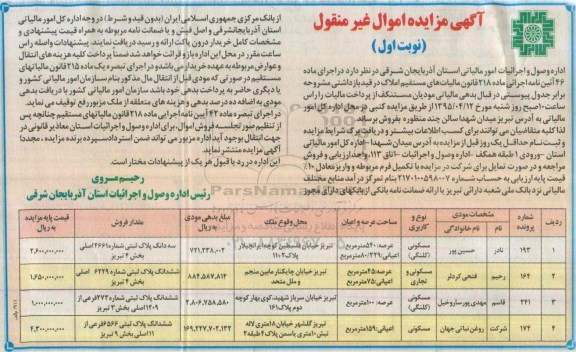 آگهی مزایده اموال غیر منقول
(نوبت اول)
اداره وصول و اجرائیات امور مالیاتی استان آذربایجان شرقی در نظر دارد در اجرای ماده
۴۶ آئین نامه اجرایی ماده ۲۱۸ قانون مالیات های مستقیم املاک در قید بازداشتی مشروحه
برابر جدول پیوستی در قبال بدهی مالیاتی مودیان مستنکف از پرداخت مالیات را راس
ساعت ۱۰ صبح روز شنبه مورخ ۱۳۹۵/۰۴/۱۲ از طریق مزایده کتبی در محل اداره کل امور
مالیاتی به آدرس تبریز میدان شهدا سالن چند منظوره بفروش برساند.
لذا کلیه متقاضیان می توانند برای کسب اطلاعات بیشتر و دریافت فرم شرایط مزایده
و ثبت نام حداقل یک روز قبل از مزایده به آدرس میدان شهدا - اداره کل امور مالیاتی
استان - ورودی ۱ طبقه همکف - اداره وصول و اجرائیات - اتاق ۱۱۳ واحد ارزیابی و فروش
مراجعه و در صورت تمایل برای شرکت در مزایده با تکمیل فرم مربوطه و واریز معادل ۱۰٪
قیمت پایه ارزیابی به حساب شماره ۲۱۷۰۱۰۰۵۹۸۰۰۷ بنام تمرکز درآمد منابع مختلف
مالیاتی نزد بانک ملی شعبه دارائی تبریز یا ارائه ضمانت نامه بانکی از بانکهای دارای مجوز
از بانک مرکزی جمهوری اسلامی ایران (بدون قید و شرط) در وجه اداره کل امور مالیاتی
استان آذربایجانشرقی و اصل فیش و یا ضمانت نامه مربوطه به همراه قیمت پیشنهادی و
مشخصات کامل خریدار درون پاکت ارائه و رسید دریافت نمایند. پیشنهادات واصله راس
ساعت مقرر در محل این اداره باز و قرائت خواهد شد ضمناً پرداخت کلیه هزینه های انتقال
و عوارض مربوطه به عهده خریدار می باشد و در اجرای تبصره یک ماده ۲۱۵ قانون مالیاتهای
مستقیم در صورتی که مودی قبل از انتقال مال مذکور بنام سازمان امور مالیاتی کشور و
یا دیگری حاضر به پرداخت بدهی خود باشد سازمان امور مالیاتی کشور با دریافت بدهی
مودی به اضافه ده درصد بدهی و هزینه های متعلقه از ملک مزبور رفع توقیف می نماید.
در اجرای تبصره ماده ۴۲ آئین نامه اجرایی ماده ۲۱۸ قانون مالیاتهای مستقیم چنانچه پس
از تنظیم صورتجلسه فروش اموال، برای اداره وصول و اجرائیات استان معاذیر قانونی در
جهت انتقال بوجود آید اداره مزبور می تواند ضمن استرداد سپرده برنده مزایده، مجددا
آگهی مزایده منتشر نماید.
این اداره در رد یا قبول هر یک از پیشنهادات مختار است.
رحیم مروی
رئیس اداره وصول و اجرائیات استان آذربایجان شرقی
ردیف شماره پرونده مشخصات مودی نام نام خانوادگی نوع و کاربری مساحت عرصه و اعیان محل وقوع ملک مبلغ بدهی مودی به ریال مقدار فروش قیمت پایه مزایده به ریال
۱ ۱۹۳ نادر حسین پور مسکونی (کلنگی) عرصه: ۵۴۰ مترمربع اعیانی: ۳۲۹/۸۰ مترمربع تبریز خیابان فلسطین کوچه ایرانجیلار پلاک ۱۱۰۲ ۷۲۱,۲۳۸,۰۰۲ سه دانگ پلاک ثبتی شماره ۴۶۶۱ اصلی بخش ۴ تبریز ۲,۶۰۰,۰۰۰,۰۰۰
۲ ۱۶۴ رحیم فتحی کردلر مسکونی تجاری عرصه: ۴۵ مترمربع اعیانی: ۷۵ مترمربع تبریز خیابان چایکنار مابین منجم و ملل متحد ۸۸۴,۵۸۷,۸۱۴ ششدانگ پلاک ثبتی شماره ۶۲۷۹ اصلی بخش ۴ تبریز ۱,۶۵۰,۰۰۰,۰۰۰
۳ ۲۴۱ قاسم مهدی پور ساروخیل مسکونی (کلنگی) عرصه: ۱۰۰ مترمربع تبریز خیابان سرباز شهید، کوی بهار کوچه دوم پلاک ۱۶۱ ۲,۸۰۶,۷۵۸,۵۸۰ ششدانگ پلاک ثبتی شماره ۲۷۳ فرعی از ۱۲۰۹ اصلی بخش ۲ تبریز ۱,۰۰۰,۰۰۰,۰۰۰
۴ ۱۷۴ شرکت روغن نباتی جهان مسکونی اعیانی: ۱۵۹ مترمربع تبریز گلشهر خیابان ۱۸ متری لاله نبش ۱۰ متری یاسمن پلاک ۴ طبقه ۲ ۱۶۹,۲۲۷,۷۰۲,۱۳۲ ششدانگ پلاک ثبتی ۶۵۶۶ فرعی از ۱۱۱ اصلی بخش ۹ تبریز ۴,۳۰۰,۰۰۰,۰۰۰